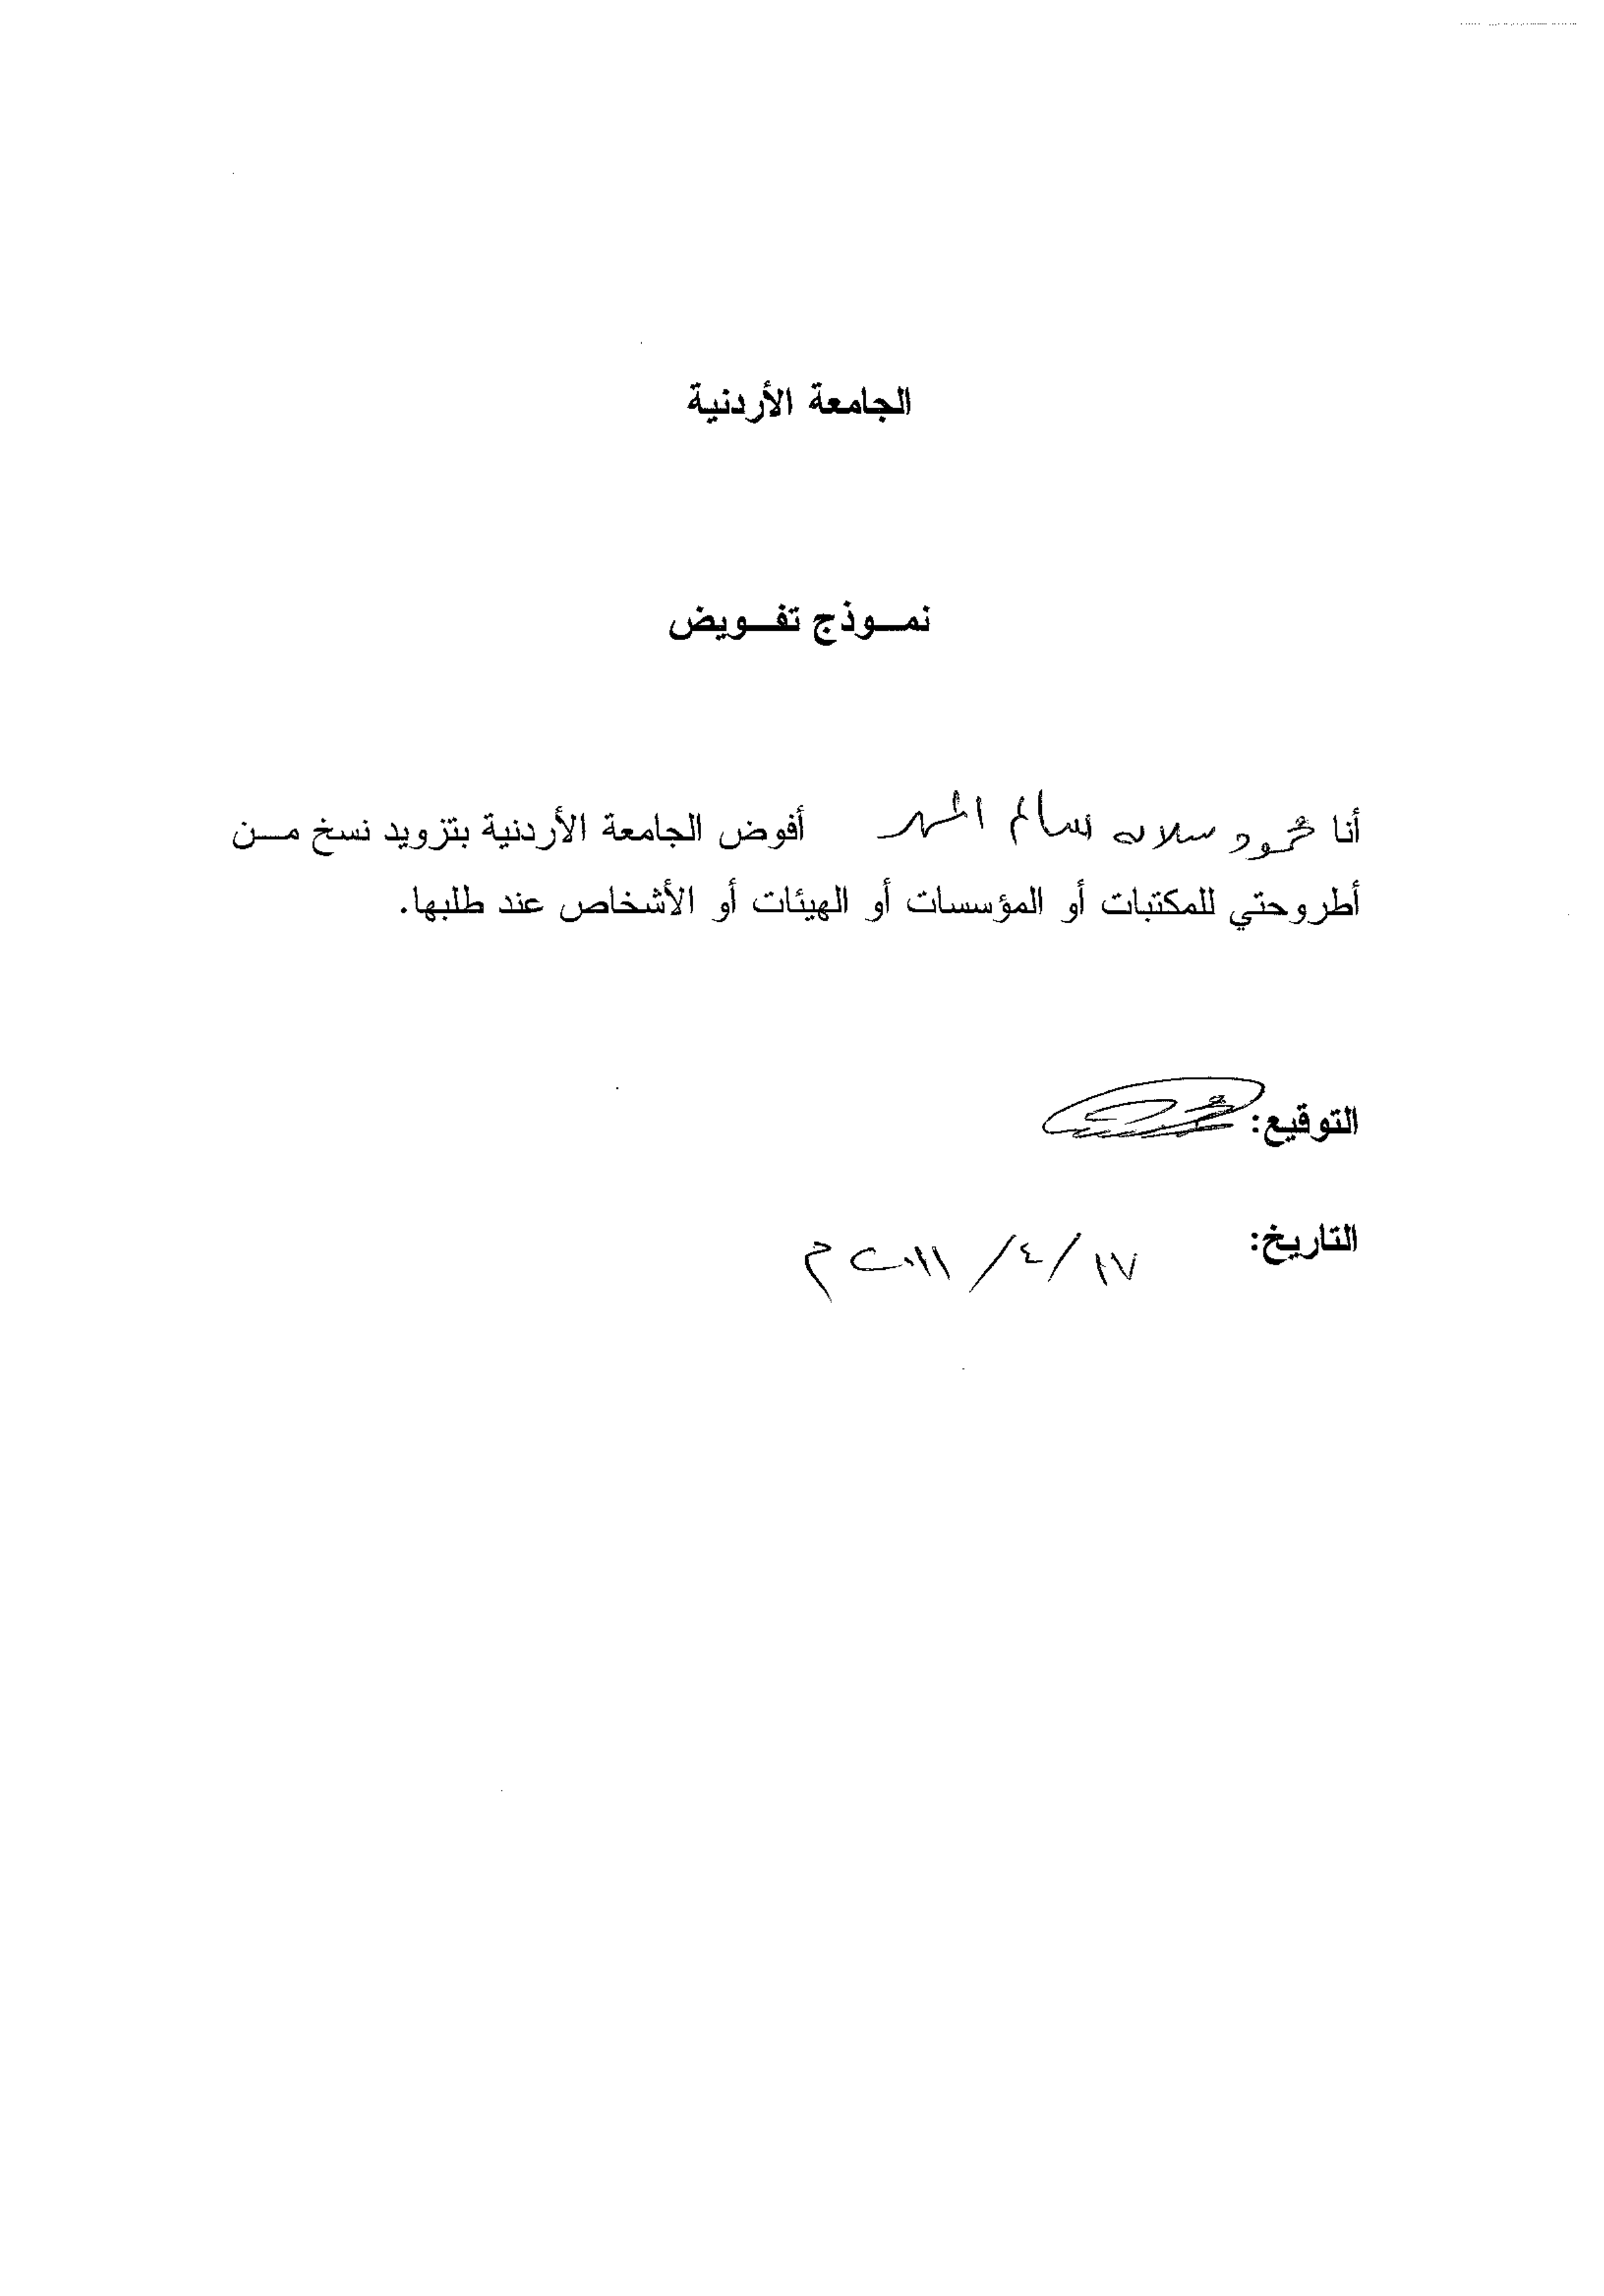 الجامعة الأردنية
نمـــوذج تفـــويض
أنا محمود سالم أفوض الجامعة الأردنية بتزويد نسخ مـــن
أطروحتي للمكتبات أو المؤسسات أو الهيئات أو الأشخاص عند طلبها.
التوقيع:
التاريخ: ١٧ / ٤ / ٢٠١١ م